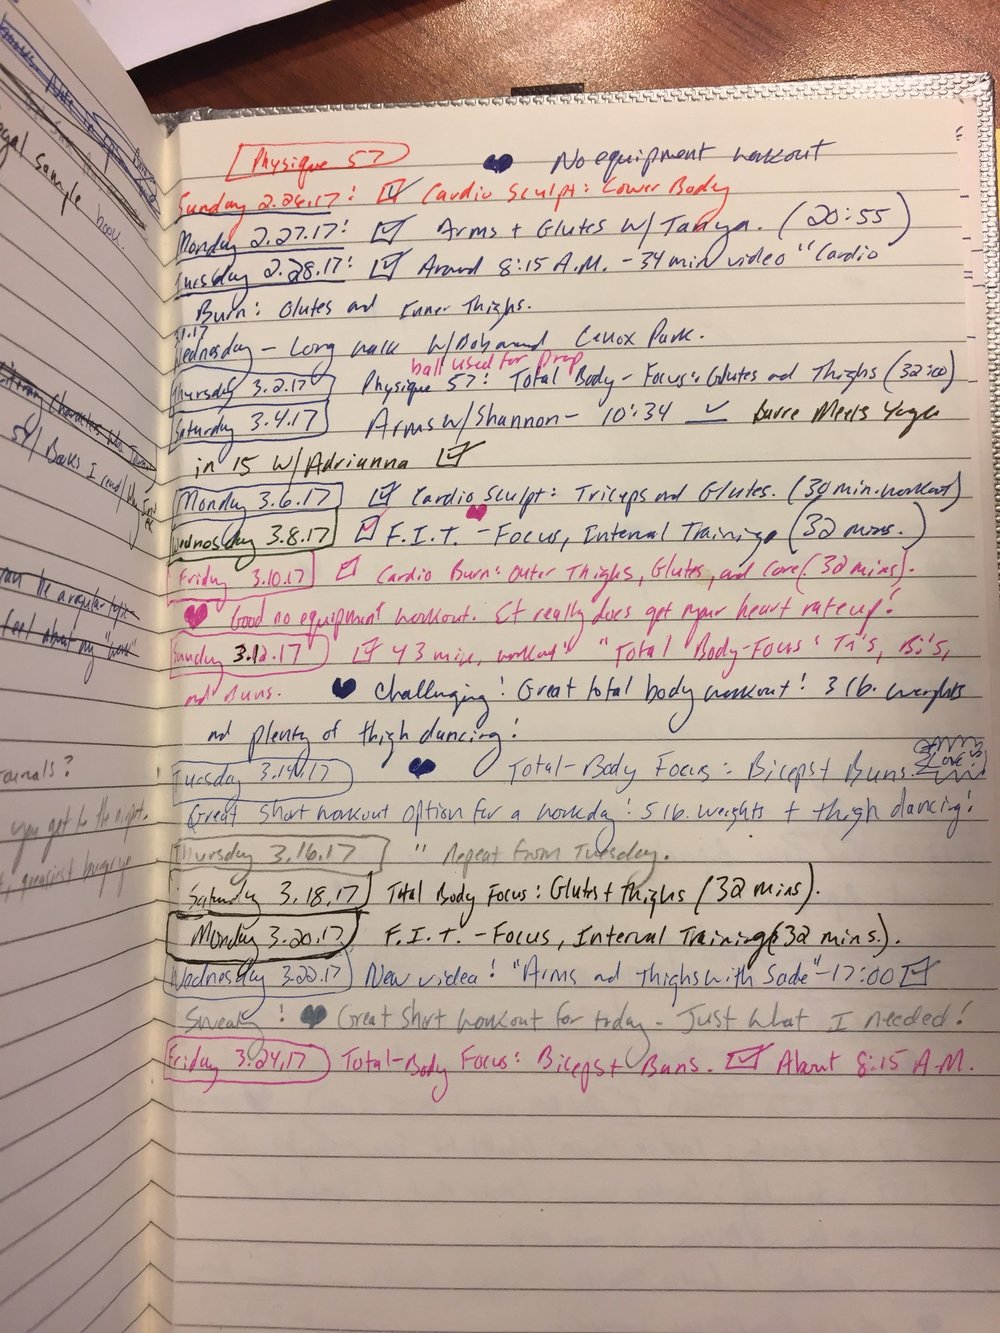 Physique 57 ♥ No equipment workout
Sunday 2.26.17: ☑ Cardio Sculpt: Lower Body
Monday 2.27.17: ☑ Arms + Glutes W/ Tanya. (20:55)
Tuesday 2.28.17: ☑ Around 8:15 A.M. - 34 min video "Cardio
Burn: Glutes and Inner Thighs.
3.1.17
Wednesday - Long walk W/ Lenox Park.
ball used for prop
Thursday 3.2.17 Physique 57: Total Body - Focus: Glutes and Thighs (32:00)
Saturday 3.4.17 Arms W/ Shannon - 10:34 ✓ Barre Meets Yoga
in 15 W/ Adrianna ☑
Monday 3.6.17 ☑ Cardio Sculpt: Triceps and Glutes. (30 min. workout)
Wednesday 3.8.17 ☑ F.I.T. ♥ - Focus, Interval Training (32 mins.)
Friday 3.10.17 ☑ Cardio Burn: Outer Thighs, Glutes, and Core. (32 mins).
♥ Good no equipment workout. It really does get your heart rate up!
Sunday 3.12.17 ☑ 43 min. workout: "Total Body-Focus: Tri's, Bi's,
and Buns. ♥ Challenging! Great total body workout! 3 lb. weights
and plenty of thigh dancing!
Tuesday 3.14.17 ♥ Total-Body Focus: Biceps + Buns. Love
Great short workout option for a workday! 5 lb. weights + thigh dancing!
Thursday 3.16.17 " Repeat from Tuesday.
Saturday 3.18.17 Total Body Focus: Glutes + Thighs (32 mins).
Monday 3.20.17 F.I.T. - Focus, Interval Training (32 mins.).
Wednesday 3.22.17 New video! "Arms and Thighs with Sade" - 17:00 ☑
Sweaty! ♥ Great short workout for today - Just what I needed!
Friday 3.24.17 Total-Body Focus: Biceps + Buns. ☑ About 8:15 A.M.
sample book.
Books I read
journals?
you get to the